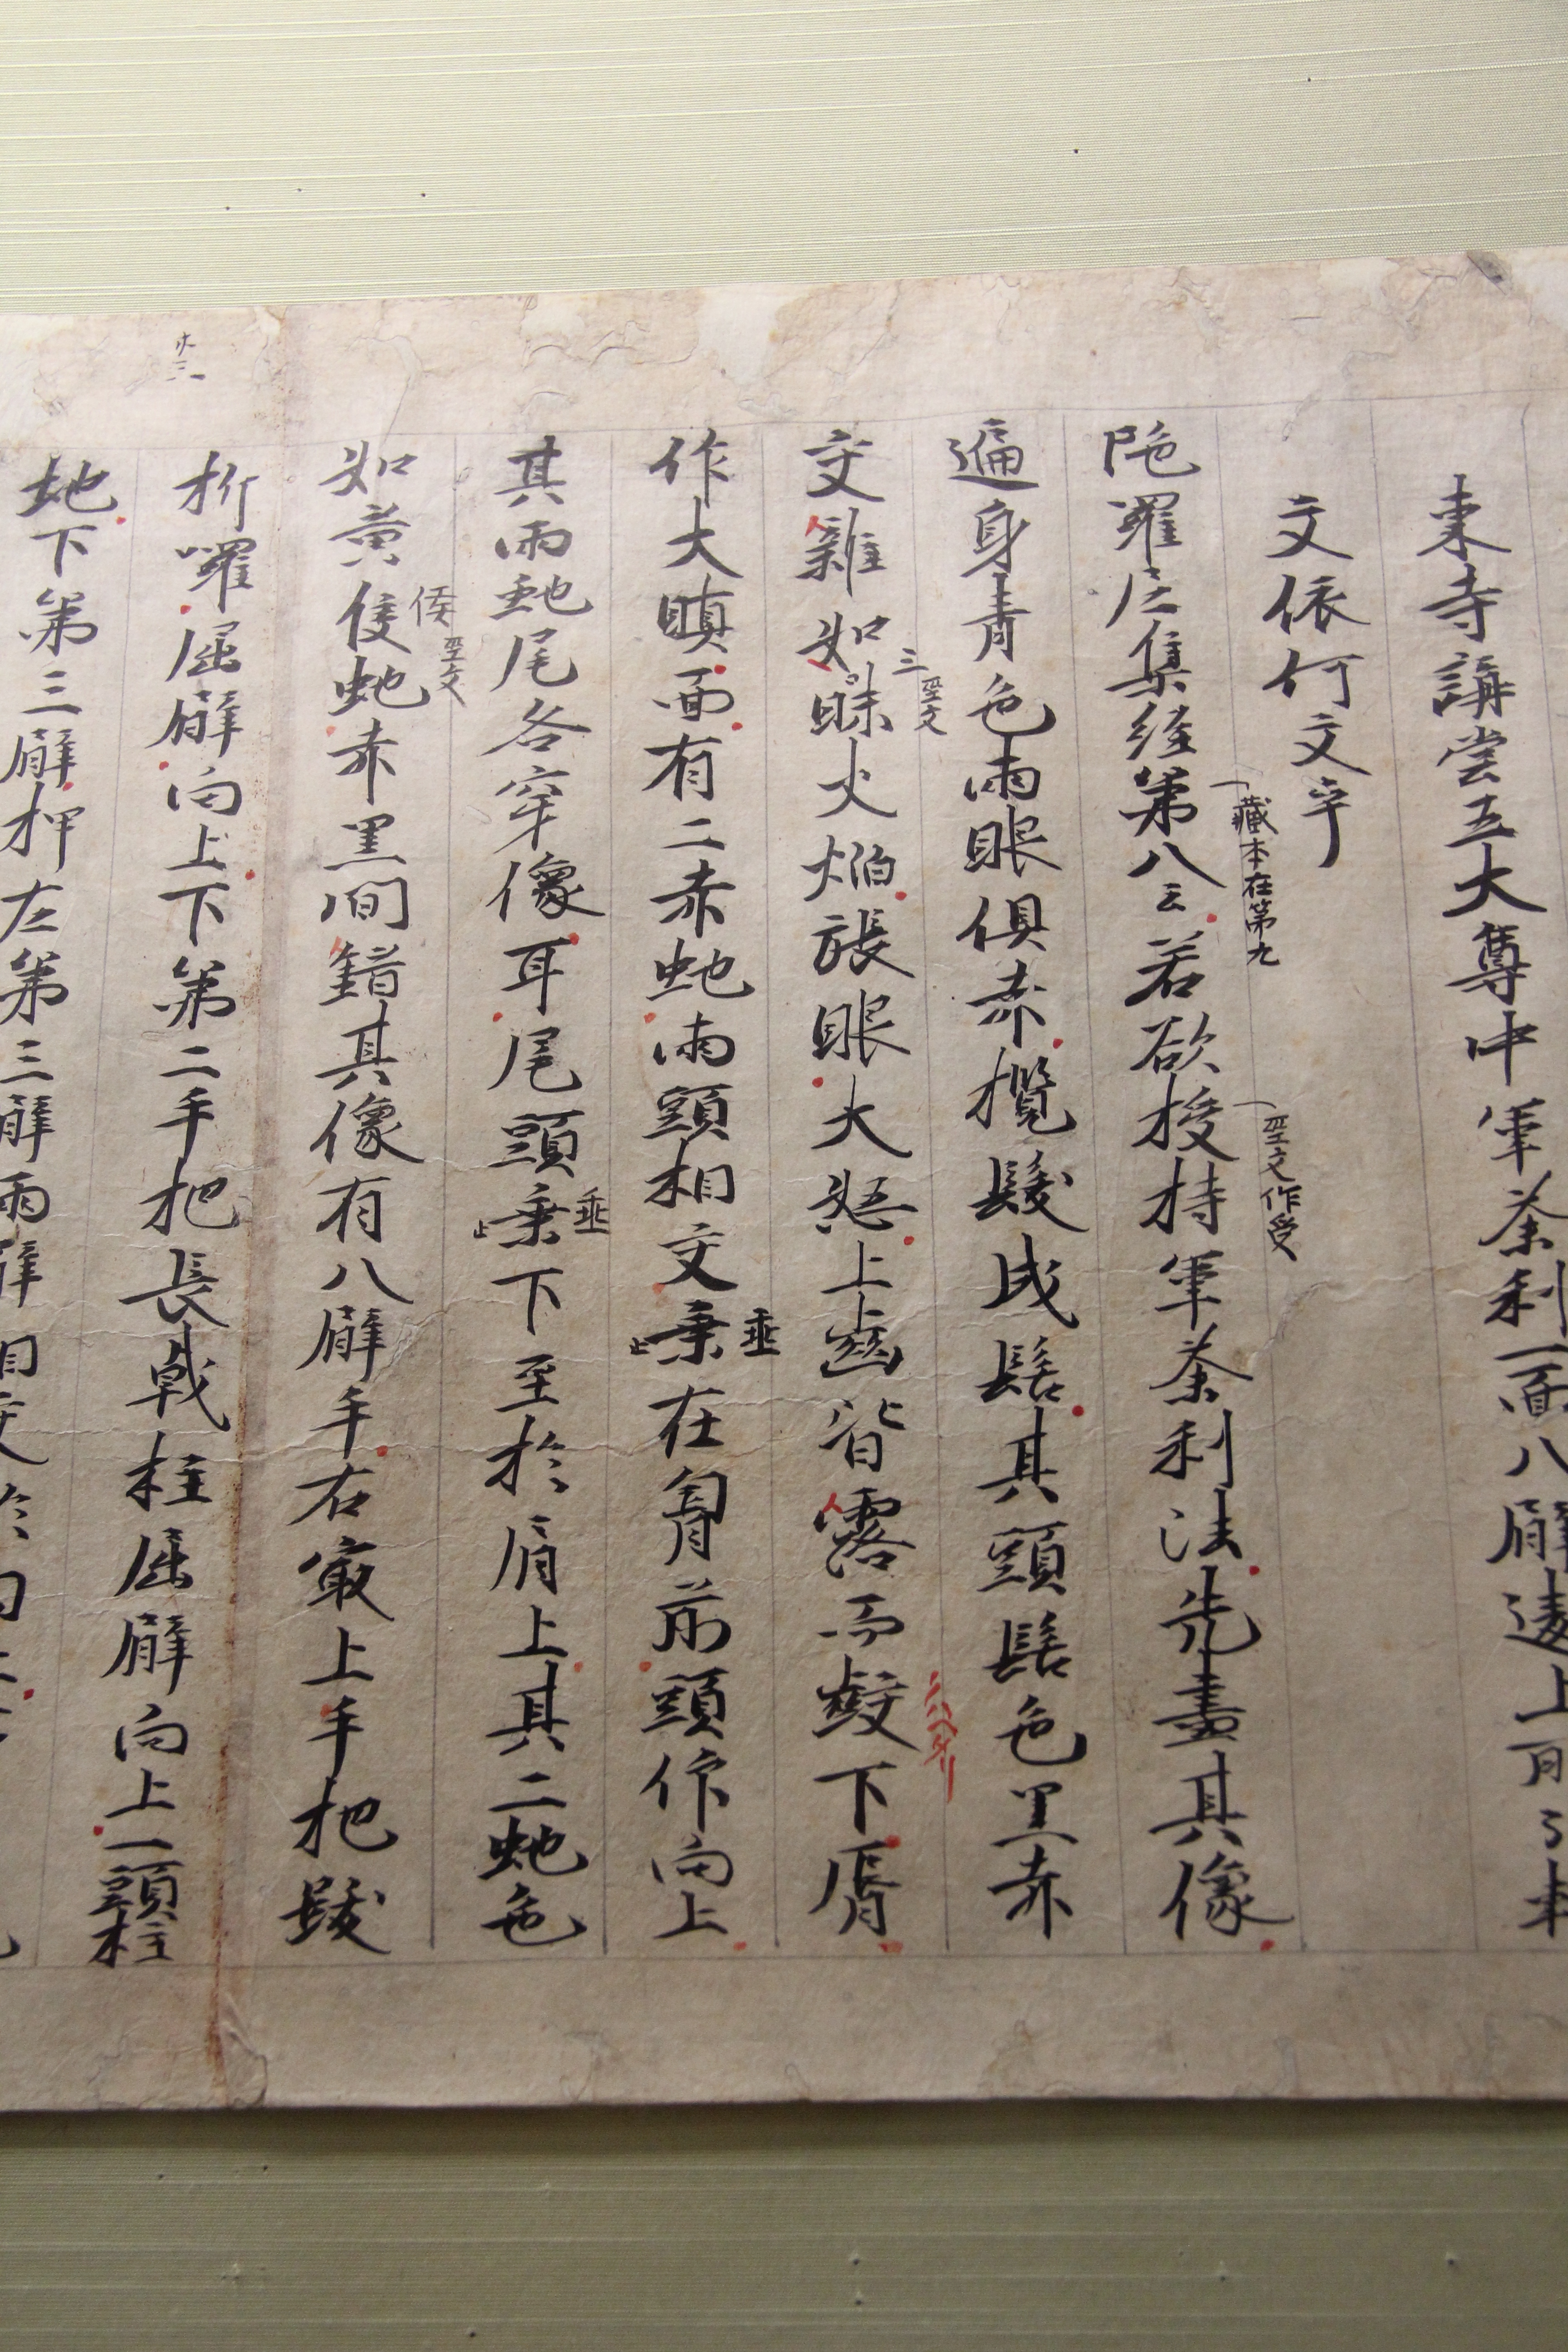 東寺講堂五大尊中軍荼利一面八臂
文依何文乎
陀羅尼集経第八云若欲授持軍荼利法先畫其像
藏本在第九
作受
遍身青色兩眼俱赤攬髮成髻其頭髻色黒赤
交雜如三昧火焔張眼大怒上齒皆露而齩下脣
作大瞋面有二赤虵兩頭相交垂在胷前頭作向上
其兩虵尾各穿像耳尾頭垂下至於肩上其二虵色
如黄侫虵赤黒間錯其像有八臂手右最上手把跋
折囉屈臂向上下第二手把長戟柱屈臂向上一頭柱
地下第三臂押左第三臂兩臂相交於